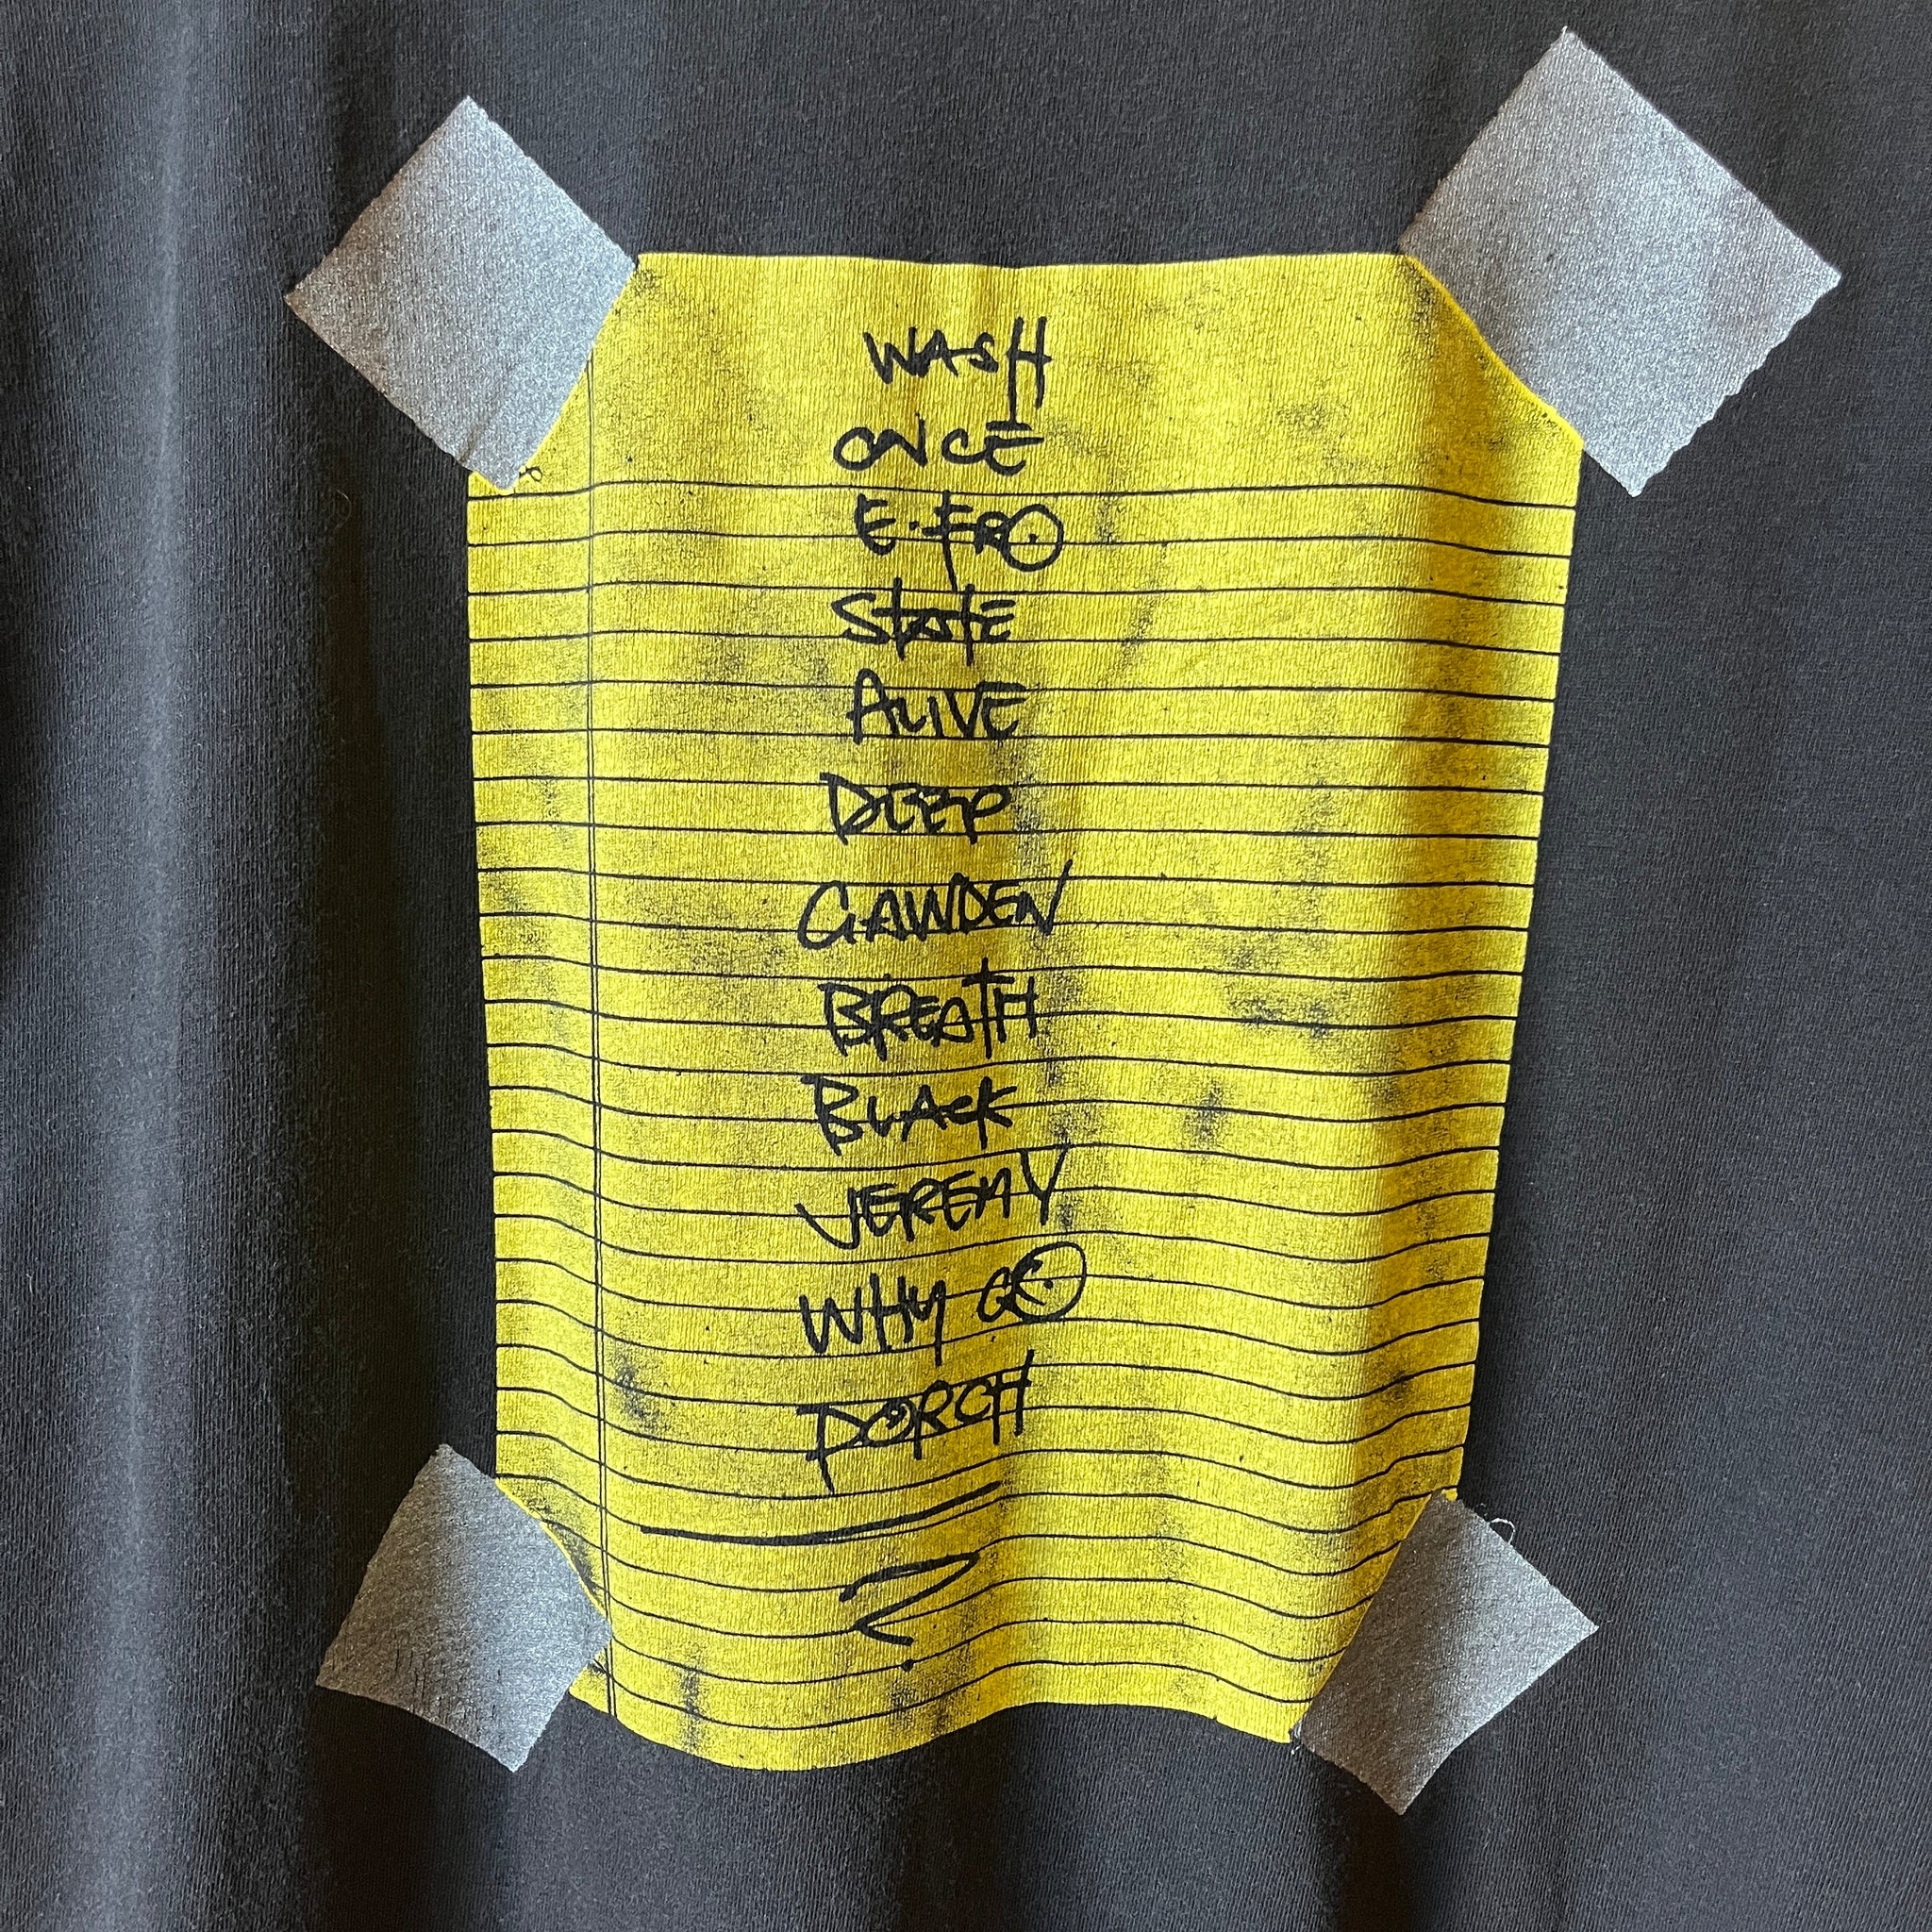 WASH
ONCE
E.FRO
StatE
ALIVE
DEEP
GAWDEN
BREATH
BLACK
JEREMY
WHY GO
PORCH
?